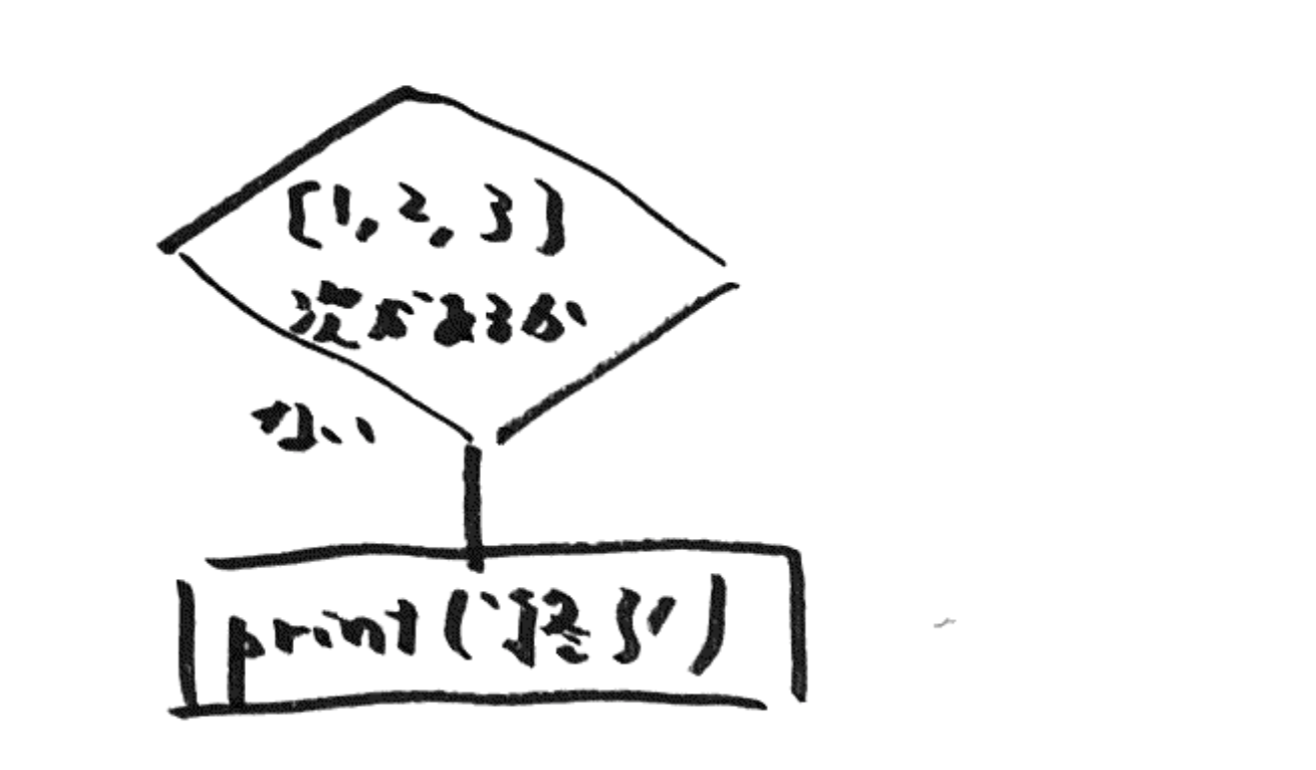 [1, 2, 3]
次があるか
ない
print('終了')